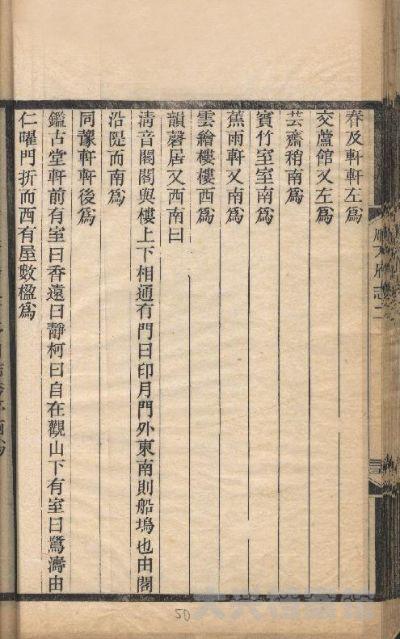 春及軒軒左爲
交蘆館又左爲
芸齋稍南爲
賓竹室室南爲
蕉雨軒又南爲
雲繪樓樓西爲
韻磬居又西南曰
淸音閣閣與樓上下相通有門曰印月門外東南則船塢也由閣
沿隄而南爲
同豫軒軒後爲
鑑古堂軒前有室曰香遠曰靜柯曰自在觀山下有室曰驚濤由
仁曜門折而西有屋數楹爲
50